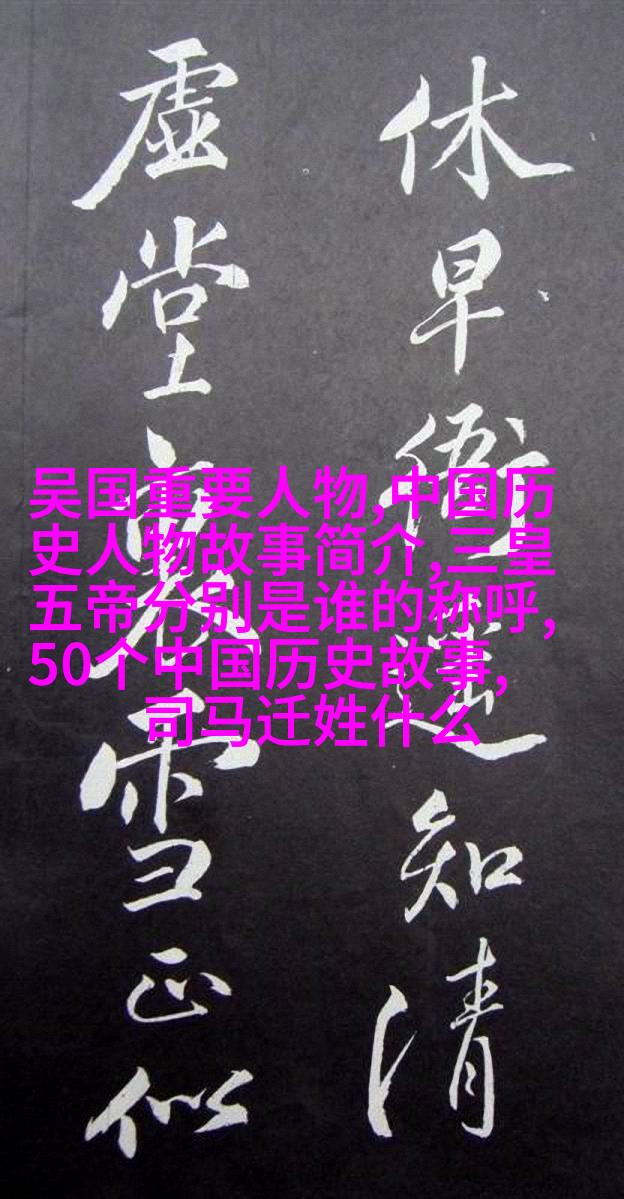 休早衙知清
虚堂雪正似
吴国重要人物,中国历
史人物故事简介,三皇
五帝分别是谁的称呼,
50个中国历史故事,
司马迁姓什么